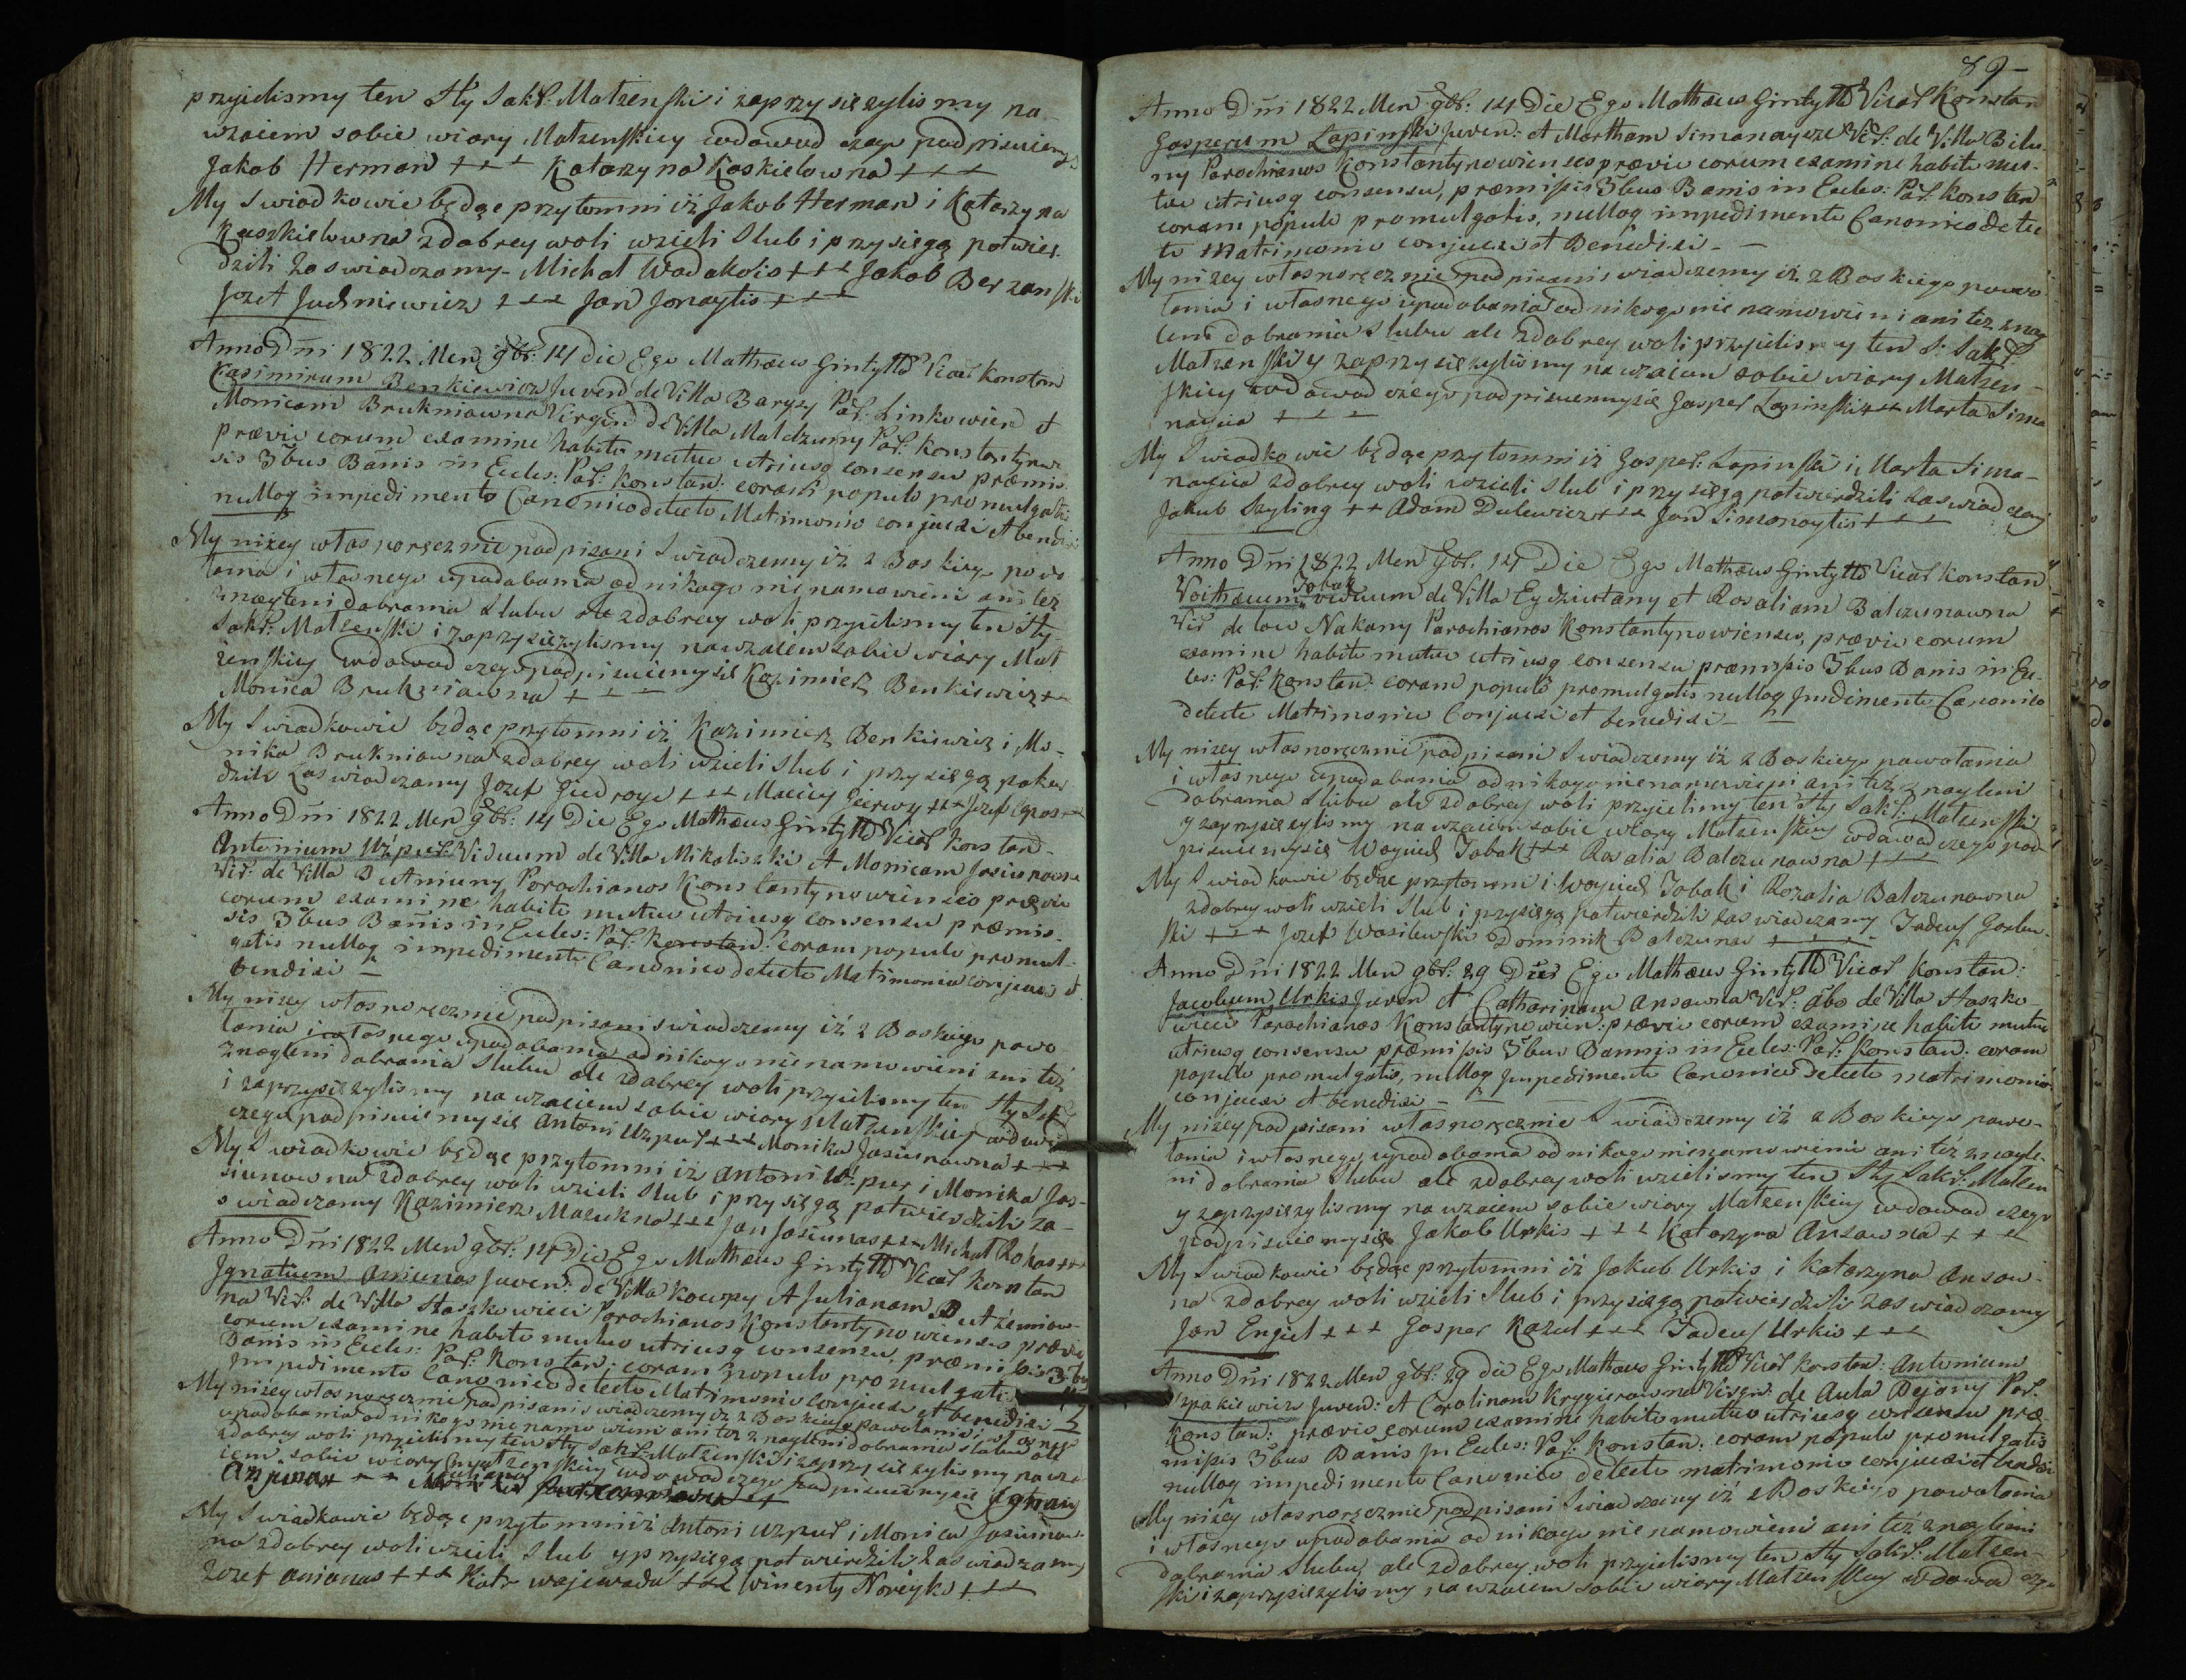 przyielismy ten Sty Sakr: Matzenski i zaprzysięzylismy na
wzaiem sobie wiary Matzenskiey wdowod czego podpisuiemy
Jakob Herman +++ Katarzyna Kaskielowna +++
My Swiadkowie będąc przytomni iż Jakob Herman i Katarzyna
Kaszkielowna zdobrey woli wzieli Slub i przysięgą potwier
dzili Zaswiadczamy - Michał Wadakolis +++ Jakob Berzanski
Jozef Juchniewicz +++ Jan Jonaytis +++
Anno Dni 1822 Men 9br: 14 die Ego Mathæus Gintyłło Vicar Konstan
Casimirum Benkiewicz Juven de Villa Barysy Par. Linkowien et
Monicam Brukniowna Virgin de Villa Maldzuny Par. Konstantynow
prævio eorum examine habito mutuo utriusq consensu præmis
sis 3bus Banis in Eccles: Par: Konstan: coram populo promulgatis
nulloq impedimento Canonico detecto Matrimonio conjunxi et benedi
My nizey własnoręcznie podpisani Swiadczemy iż z Boskiego powo
łania i własnego upodobania od nikogo nienamowieni ani też
znagleni dobrania Slubu ale zdobrey woli przyielismy ten Sty
Sakr: Matzenski i zaprzysięzylismy nawzaiem sobie wiary Mat
zenskiey wdowod czego podpisuiemysie Kazimierz Benkiewicz ++
Monica Brukniowna +++
My Swiadkowie będąc przytomni iż Kazimierz Benkiewicz i Mo-
nika Brukniowna zdobrey woli wzieli Slub i przysięgą potwr
dzili Zaswiadczamy Jozef Giedroyc +++ Maciey +++ Jozef
Anno Dni 1822 Men 9br: 14 Die Ego Mathæus Gintyłło Vicar Konstan-
Antonium Uzpur: Viduum de Villa Mikoliszki et Monicam Jasiunowna
Vir: de Villa Butniuny Parochianos Konstantynowienses prævio
eorum examine habito mutuo utriusq consensu præmis-
sis 3bus Banis in Eccles: Par: Konstan: coram populo promul-
gatis nulloq impedimento Canonico detecto Matrimonio conjunxi et
benedixi -
My nizey własnoręcznie podpisani swiadczemy iż z Boskiego powo
łania i własnego upodobania od nikogo nienamowieni ani też
znagleni dobrania Slubu ale zdobrey woli przyielismy ten Sty Sak
i zaprzysięzylismy nawzaiem sobie wiary Matzenskiey wdowod
czego podpisuiemysię Antoni Uzpur +++ Monika Jasiunowna +++
My Swiadkowie będąc przytomni iż Antoni Uzpur i Monika Jas-
siunowna zdobrey woli wzieli Slub i przysięgą potwierdzili za-
swiadczamy Kazimierz Macukna +++ Jan Jasiunas +++ Michał Rokas +++
Anno Dni 1822 Men 9br: 14 Die Ego Mathæus Gintyłło Vicar Konstan
Ignatium Aniunas Juven: de Villa Kowzy et Julianam Butzeniow-
na Vir: de Villa Staszkowicei Parochianos Konstantynowienses prævio
eorum examine habito mutuo utriusq consensu, præmissis 3bus
Banis in Eccles: Par: Konstan: coram populo promulgatis
Impedimento Canonico detecto Matrimonio conjunxi et benedixi
My nizey własnoręcznie podpisani swiadczemy iż z Boskiego powołania i własnego
upodobania od nikogo nie namowieni ani też znagleni dobrania slubu ale
zdobrey woli przyielismy ten Sty Sakr Matzenski i zaprzysięzylismy nawza
iem sobie wiary Matzenskiey wdowod czego podpisuiemysię Ignacy
My Swiadkowie będąc przytomni iż Antoni Uzpur i Monica Jasiunow-
na zdobrey woli wzieli Slub y przysięgą potwierdzili Zaswiadczamy
Jozef Anianas +++ Piotr wojewoda +++ Winenty Noreyko +++
89-
Anno Dni 1822 Men 9br: 14 Die Ego Mathæus Gintyłło Vicar Konstan
Gasperum Lapinski Juven: et Martham Simonaycze Vir: de Villa Bilu
ny Parochianos Konstantynowienses prævio eorum examine habito mu-
tuo utriusq consensu, præmissis 3bus Banis in Eccles: Par. Konstan
coram populo promulgatis, nulloq impedimento Canonico detec
to Matrimonio conjunxi et Benedixi - -
My nizey własnoręcznie podpisani swiadczemy iż z Boskiego powo
łania i własnego upodobania od nikogo nie namowieni ani też znag
leni dobrania slubu ale zdobrey woli przyielismy ten S: Sakr
Matzenski y zaprzysięzylismy nawzaiem sobie wiary Matzen-
skiey wdowod czego podpisuiemysię Gasper Lapinski +++ Marta Simo
naycia +++
My Swiadkowie będąc przytomni iż Gasper: Lapinski i Marta Simo-
naycia zdobrey woli wzieli slub i przysięgą potwierdzili Zaswiadczamy
Jakub Szyling ++ Adam Dulewicz +++ Jan Simonaytis +++
Anno Dni 1822 Men 9br. 14 Die Ego Mathæus Gintyłło Vicar Konstan
Jobak
Voithæum viduum de Villa Eydziutany et Rosaliam Balczunowna
Vir de low Nakany Parochianos Konstantynowienses, prævio eorum
examine habito mutuo utriusq consensu præmissis 3bus Banis in Ec-
les: Par: Konstan: coram populo promulgatis nulloq Impedimento Canonico
detecto Matrimonio Conjunxi et benedixi - -
My nizey własnoręcznie podpisani Swiadczemy iż z Boskiego powołania
i własnego upodobania od nikogo nienamowieni ani też znagleni
dobrania Slubu ale zdobrey woli przyielismy ten Sty Sakr: Matzenski
y zaprzysięzylismy nawzaiem sobie wiary Matzenskiey wdowod czego pod
pisuiemysię Woyciech Jobak +++ Rozalia Balczunowna +++
My Swiadkowie będąc przytomni i Woyciech Jobak i Rozalia Balczunowna
zdobrey woli wzieli Slub i przysięgą potwierdzili Zaswiadczamy Tadeusz Gorbu-
ski +++ Jozef Wasilewski Dominik Balczunas ++++
Anno Dni 1822 Men 9br: 29 Die Ego Mathæus Gintyłło Vicar Konstan:
Jacobum Urkis Juven et Catharinam Ansowna Vir: abo de Villa Staszko-
wicei Parochianos Konstantynowien: prævio eorum examine habito mutuo
utriusq consensu præmissis 3bus Bannis in Eccles: Par: Konstan: coram
populo promulgatis, nulloq Impedimento Canonico detecto matrimonio
conjunxi et benedixi - - -
My nizey podpisani własnoręcznie Swiadczemy iż z Boskiego powo-
łania i własnego upodobania od nikogo nienamowieni ani też znagle-
ni dobrania Slubu ale zdobrey woli wzielismy ten Sty Sakr: Matzen
y zaprzysięzylismy nawzaiem sobie wiary Matzenskiey wdowod czego
podpisuiemysię Jakob Urkis +++ Katarzyna Ansowna +++
My Swiadkowie będąc przytomni iż Jakub Urkis i Katarzyna Ansow-
na zdobrey woli wzieli Slub i przysięgą potwierdzili Zaswiadczamy
Jan Engiel +++ Gasper Kazul +++ Tadeusz Urkis +++
Anno Dni 1822 Men 9br: 29 die Ego Mathæus Gintyłło Vicar Konstan: Antonium
Szpakiewicz Juven: et Carolinam Krygierowna Virgin: de Aula Dejany Par.
Konstan: prævio eorum examine habito mutuo utriusq consensu præ-
missis 3bus Banis in Eccles: Par: Konstan: coram populo promulgatis
nulloq impedimento Canonico detecto matrimonio conjunxi et benedixi
My nizey własnoręcznie podpisani Swiadczemy iż z Boskiego powołania
i własnego upodobania od nikogo nienamowieni ani też znagleni
dobrania Slubu, ale zdobrey woli przyielismy ten Sty Sakr: Matzen-
ski i zaprzysięzylismy nawzaiem sobie wiary Matzenskiey wdowod czego